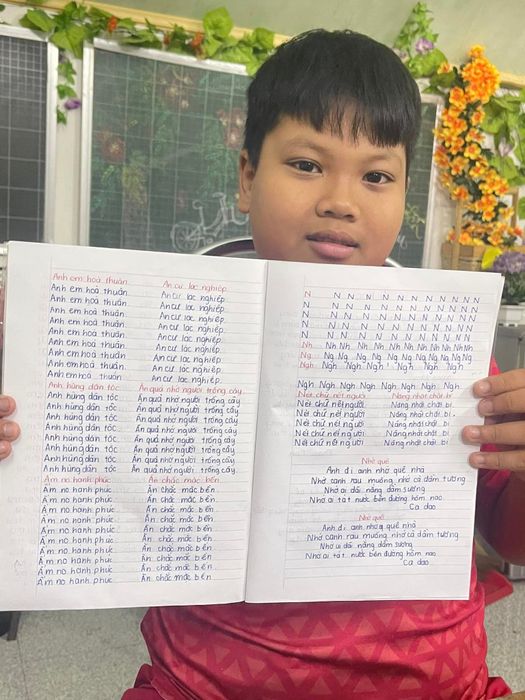 Anh em hoà thuận
Anh em hoà thuận
Anh em hoà thuận
Anh em hoà thuận
Anh em hoà thuận
Anh em hoà thuận
Anh em hoà thuận
Anh em hoà thuận
Anh em hoà thuận
Anh hùng dân tộc
Anh hùng dân tộc
Anh hùng dân tộc
Anh hùng dân tộc
Anh hùng dân tộc
Anh hùng dân tộc
Anh hùng dân tộc
Anh hùng dân tộc
Ấm no hạnh phúc
Ấm no hạnh phúc
Ấm no hạnh phúc
Ấm no hạnh phúc
Ấm no hạnh phúc
Ấm no hạnh phúc
Ấm no hạnh phúc
Ấm no hạnh phúc
Ấm no hạnh phúc
An cư lạc nghiệp
An cư lạc nghiệp
An cư lạc nghiệp
An cư lạc nghiệp
An cư lạc nghiệp
An cư lạc nghiệp
An cư lạc nghiệp
An cư lạc nghiệp
An cư lạc nghiệp
Ăn quả nhớ người trồng cây
Ăn quả nhớ người trồng cây
Ăn quả nhớ người trồng cây
Ăn quả nhớ người trồng cây
Ăn quả nhớ người trồng cây
Ăn quả nhớ người trồng cây
Ăn quả nhớ người trồng cây
Ăn quả nhớ người trồng cây
Ăn chắc mặc bền
Ăn chắc mặc bền
Ăn chắc mặc bền
Ăn chắc mặc bền
Ăn chắc mặc bền
Ăn chắc mặc bền
Ăn chắc mặc bền
Ăn chắc mặc bền
Ăn chắc mặc bền
N N N N N N N N N N N
N N N N N N N N N N N
N N N N N N N N N N N
N N N N N N N N N N N
N N N N N N N N N N N
Nh Nh Nh Nh Nh Nh Nh Nh Nh Nh
Ng Ng Ng Ng Ng Ng Ng Ng Ng Ng
Ngh Ngh Ngh Ngh Ngh Ngh Ngh
Ngh Ngh Ngh Ngh Ngh Ngh Ngh
Nét chữ nết người Năng nhặt chặt bị
Nét chữ nết người Năng nhặt chặt bị
Nét chữ nết người Năng nhặt chặt bị
Nét chữ nết người Năng nhặt chặt bị
Nét chữ nết người Năng nhặt chặt bị
Nét chữ nết người Năng nhặt chặt bị
Nhớ quê
Anh đi anh nhớ quê nhà
Nhớ canh rau muống nhớ cà dầm tương
Nhớ ai dãi nắng dầm sương
Nhớ ai tát nước bên đường hôm nao
Ca dao
Nhớ quê
Anh đi anh nhớ quê nhà
Nhớ canh rau muống nhớ cà dầm tương
Nhớ ai dãi nắng dầm sương
Nhớ ai tát nước bên đường hôm nao
Ca dao